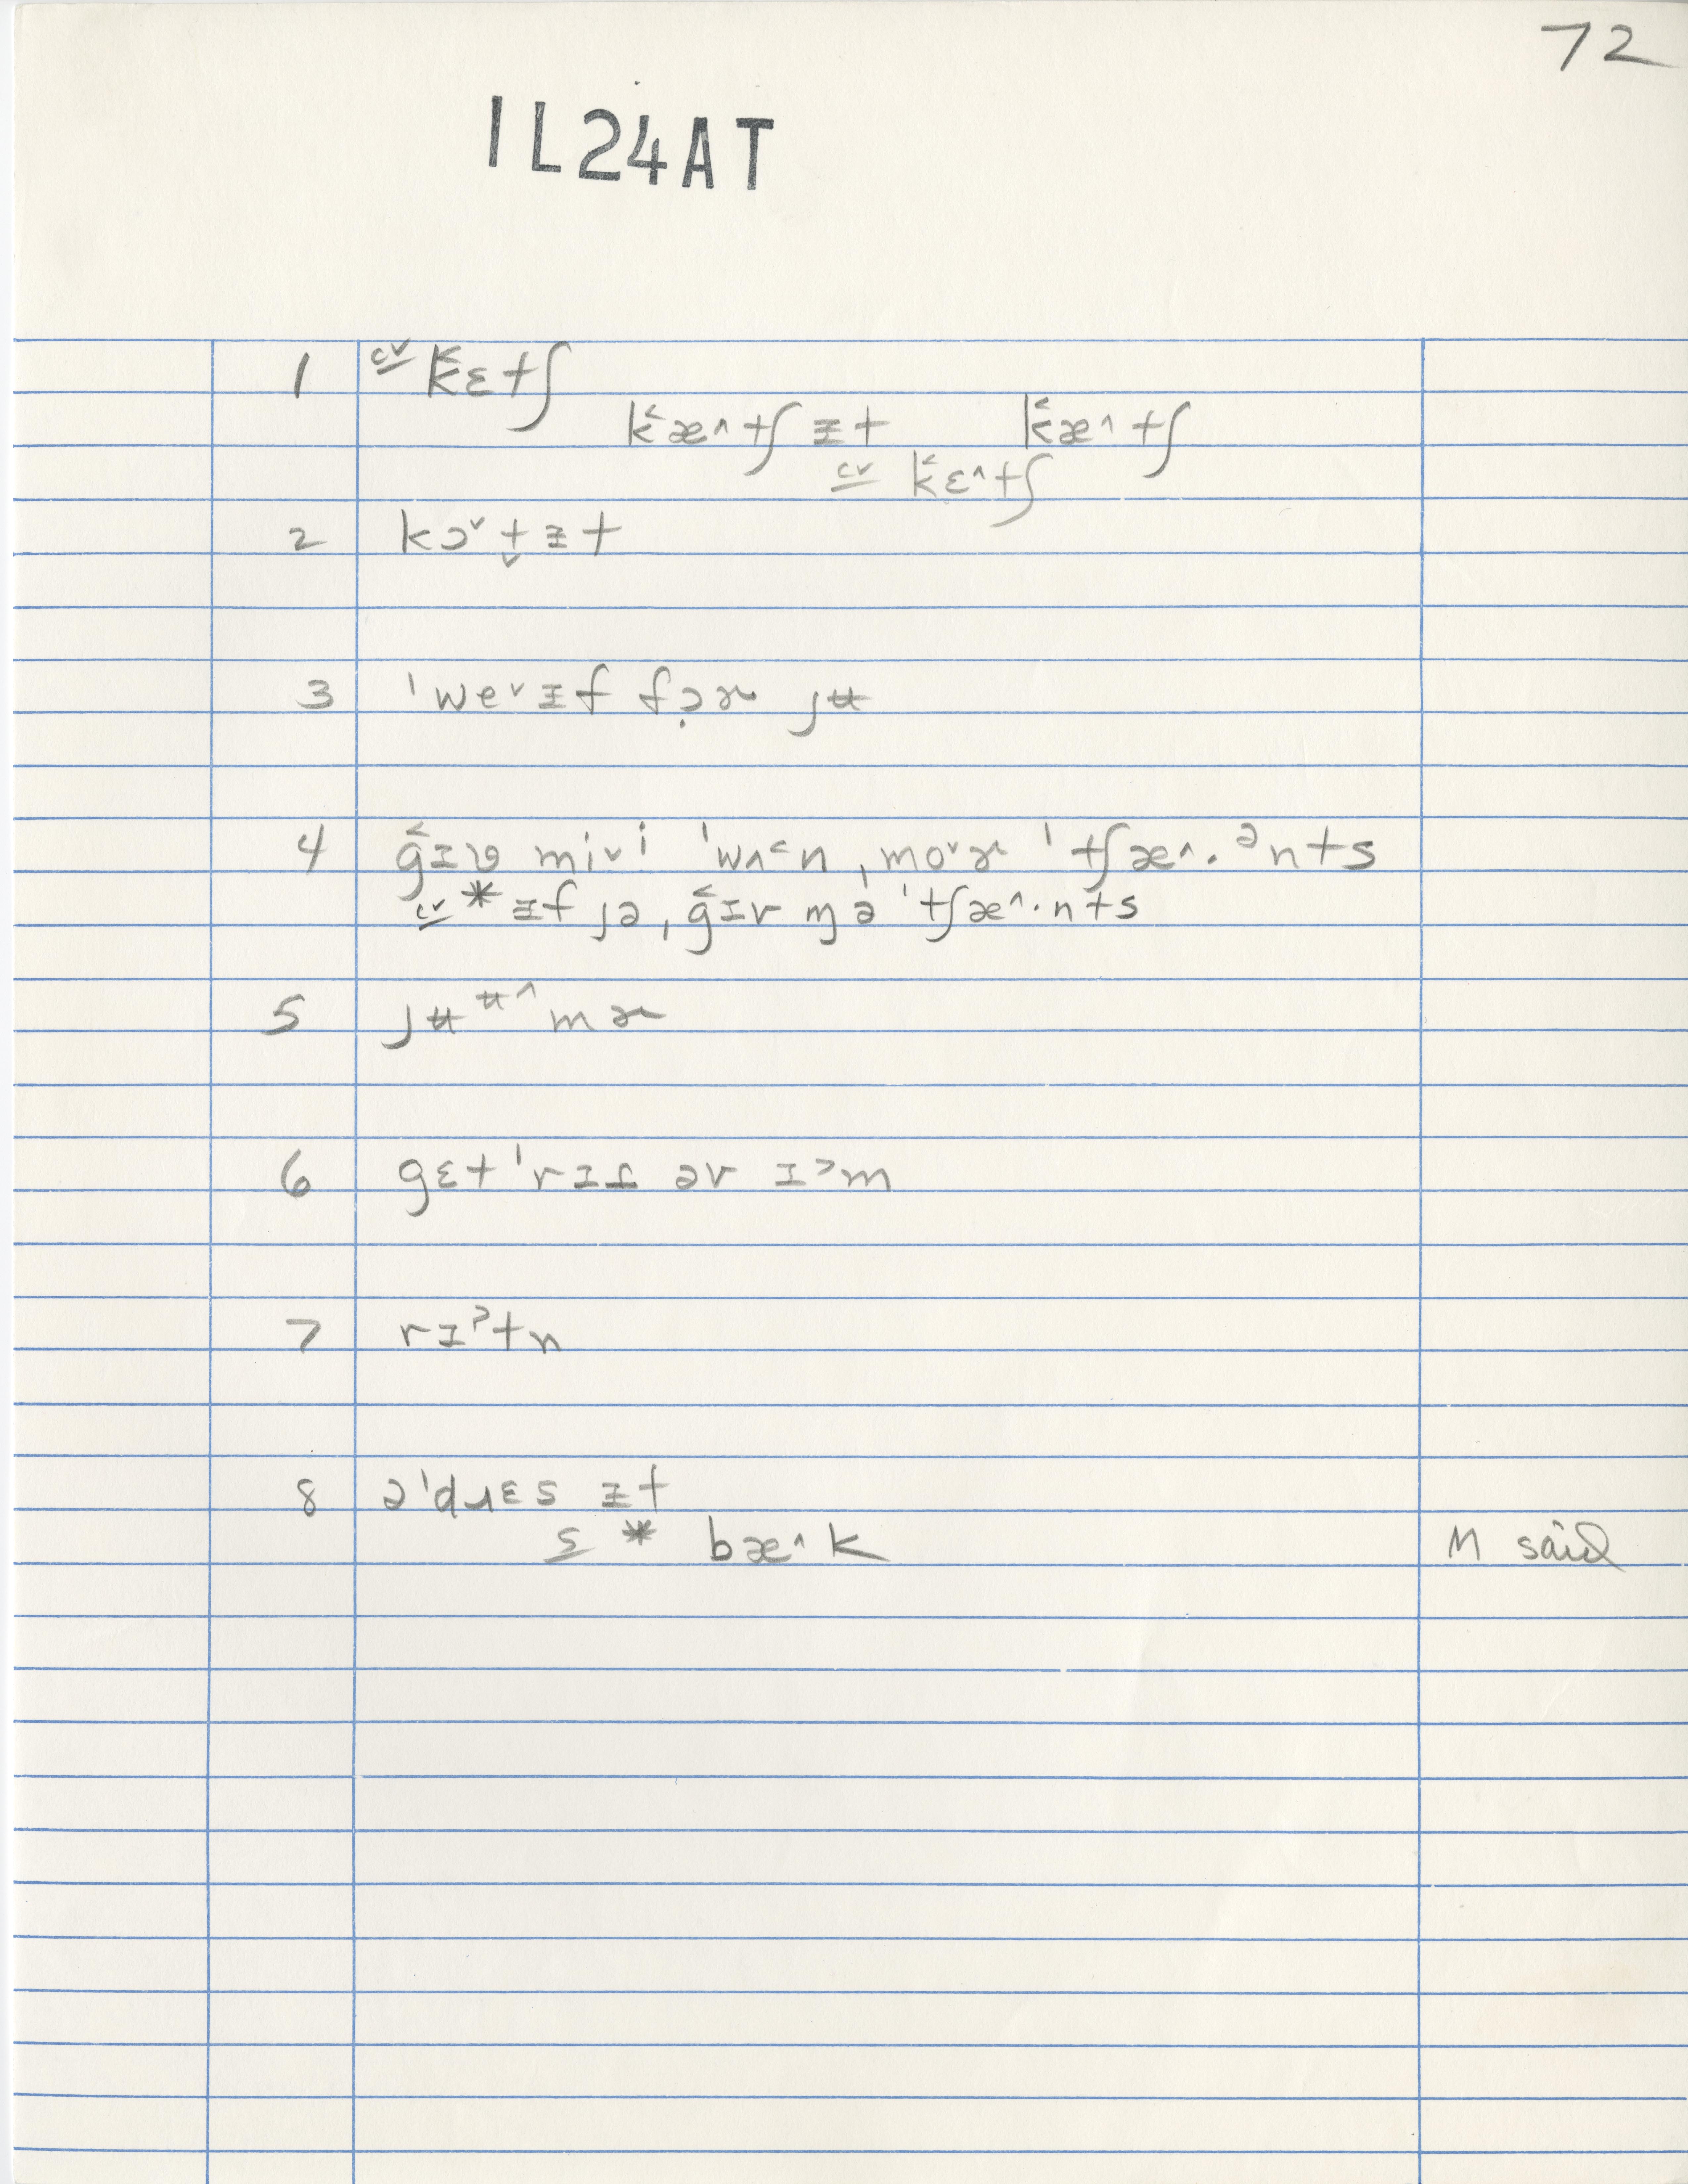 72
IL24AT
1 cv k̆ɛtʃ
k̆æ^tʃ ɪt k̆æ^tʃ
cv k̆ɛ^tʃ
2 kɔˇt̬ɪt
3 ˈweˇɪf fɔ̣ɚ jʉ
4 ğɪv miˇi ˈwʌ˂n ˌmoˇɚ ˈtʃæ^·ᵊnts
cv * ɪf jə ˌğɪv mə ˈtʃæ^·nts
5 jʉᶶ^mɚ
6 gɛt ˈrɪd əv ɪ˃m
7 rɪˀtn
8 əˈdɹɛs ɪt
s * bæ^k M said